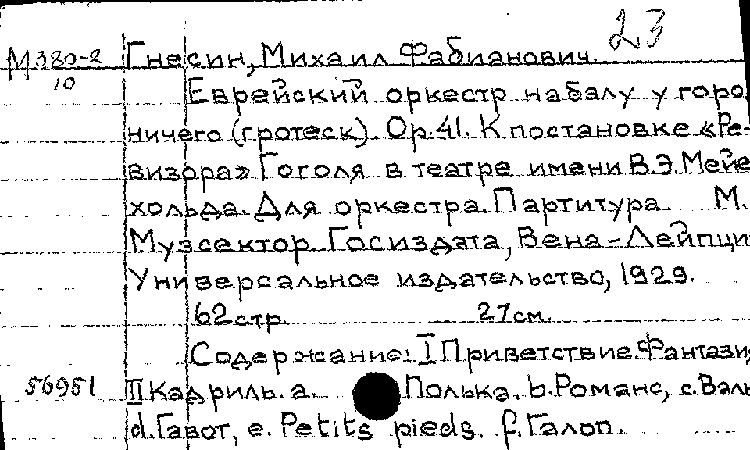 23
М 380-2 Гнесин, Михаил Фабианович.
10
Еврейский оркестр на балу у горо
ничего (гротеск). Op. 41. К постановке «Ре-
визора» Гоголя в театре имени В.Э. Мейе
хольда. Для оркестра. Партитура М.
Музсектор Госиздата, Вена-Лейпци
Универсальное издательство, 1929.
62 стр. 27 см.
Содержание: I Приветствие. Фантази
56951 II Кадриль. a. Полька. b. Романс, c. Валь
d. Гавот, e. Petits pieds. f. Галоп.